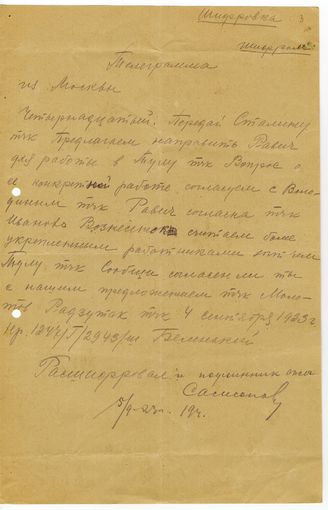 Шифровка 3
шифром
Телеграмма
из Москвы
Четырнадцатый. Передай Сталину
тчк Предлагаем направить Равич
для работы в Тулу тчк Вопрос о
ее конкретной работе согласуем с Воло-
диным тчк Равич согласна тчк
Иваново Вознесенск считаем более
укрепленным работниками
Тулу тчк Сообщи согласен ли ты
с нашим предложением тчк Моло-
тов Рудзутак тчк 4 сентября 1923 г.
Нр. 1247/Т/2943/ш Беленький
Расшифровал и подлинник
Самсонов
5/9-23 г. 19ч.